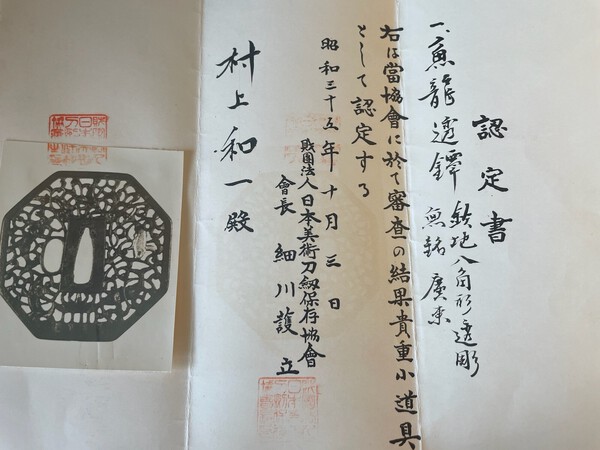 認定書
一、魚龍透鐔 鉄地八角形透彫
無銘 廣東
右は當協會に於て審査の結果貴重小道具
として認定する
昭和三十五年十月三日
財團法人日本美術刀剣保存協會
會長 細川護立
村上和一殿